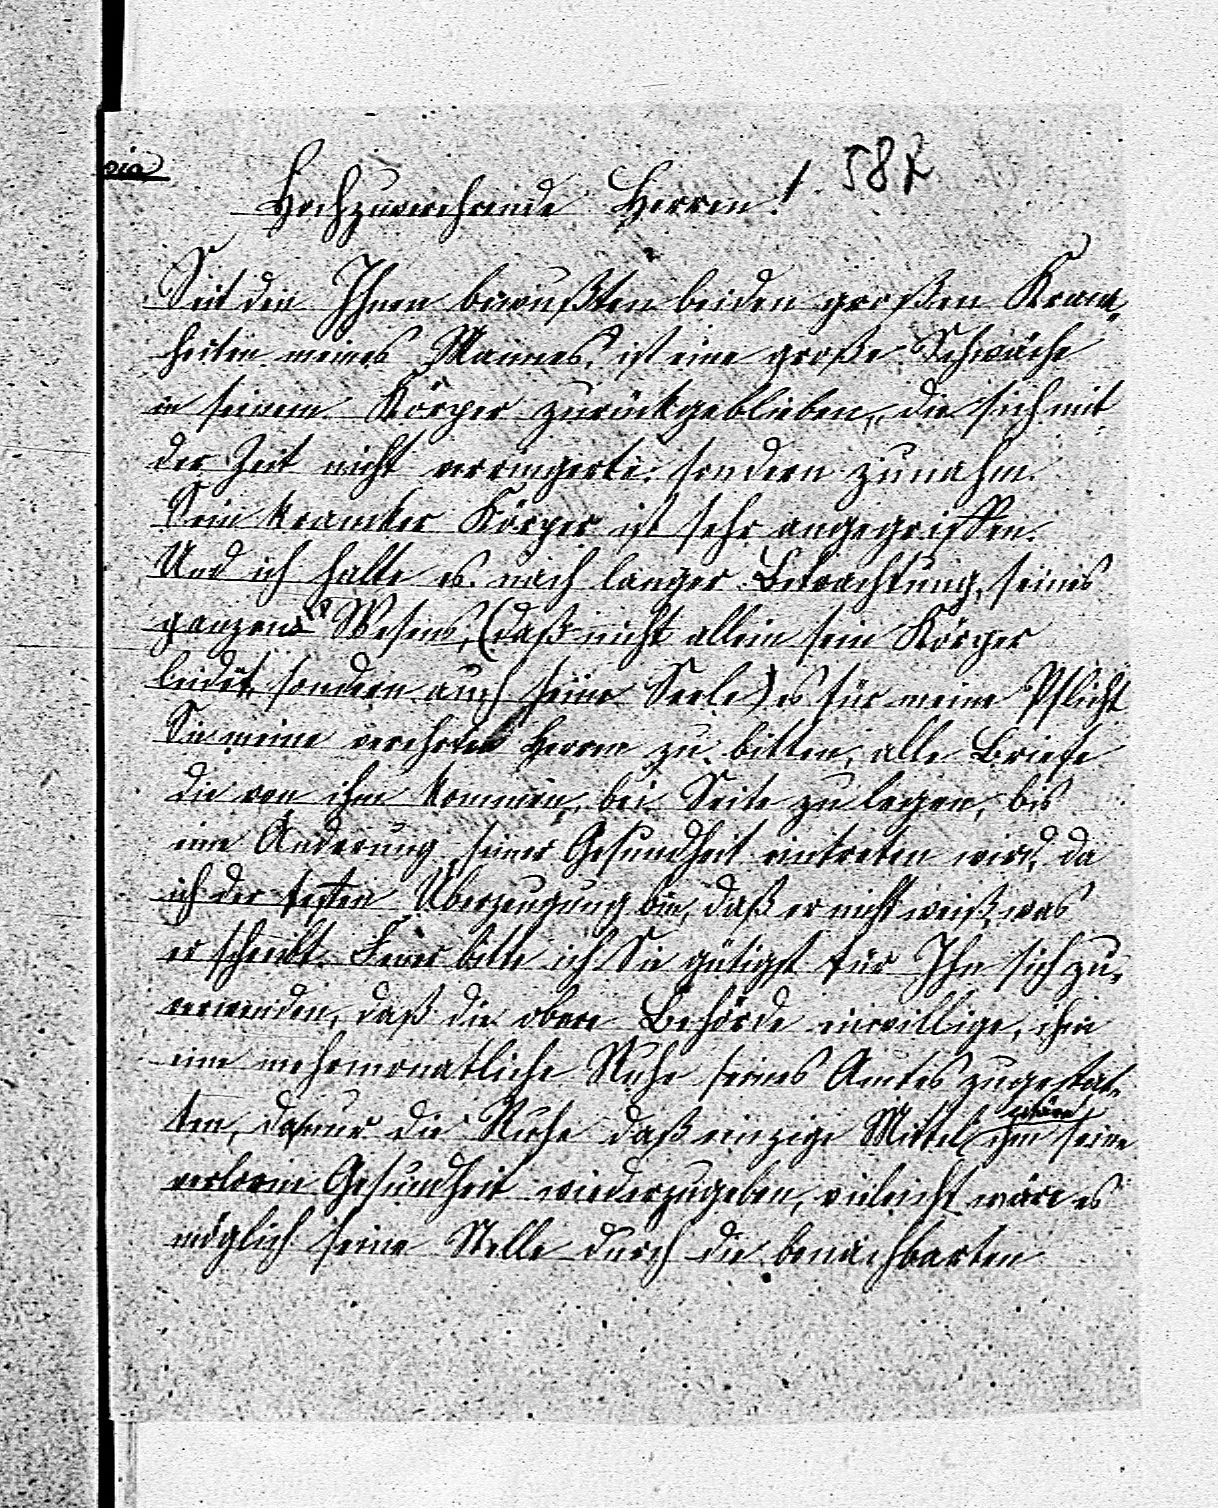 587
Hochzuverehrende Herren!
Seit den Ihnen bewußten beiden großen Krank-
heiten meines Mannes, ist eine große Schwäche
in seinem Körper zurückgeblieben, die sich mit
der Zeit nicht verringerte, sondern zunahm.
Sein kranker Körper ist sehr angegriffen.
Und ich halte es nach langer Betrachtung, seines
ganzen Wesens, (daß nicht allein sein Körper
leidet, sondern auch seine Seele) es für meine Pflicht
Sie meine verehrten Herren zu bitten, alle Briefe
die von ihm kommen, bei Seite zu legen, bis
eine Änderung seiner Gesundheit eintreten wird, da
ich der festen Überzeugung bin, daß er nicht weiß, was
er schreibt. Ferner bitte ich Sie gütigst für Ihn sich zu
verwenden, daß die obere Behörde einwillige, ihm
eine mehrmonatliche Ruhe seines Amtes zugestat-
ten, da nur die Ruhe daß einzige Mittel wäre ihm seine
verlorene Gesundheit wiederzugeben, vieleicht wäre es
möglich seine Stelle durch die benachbarten